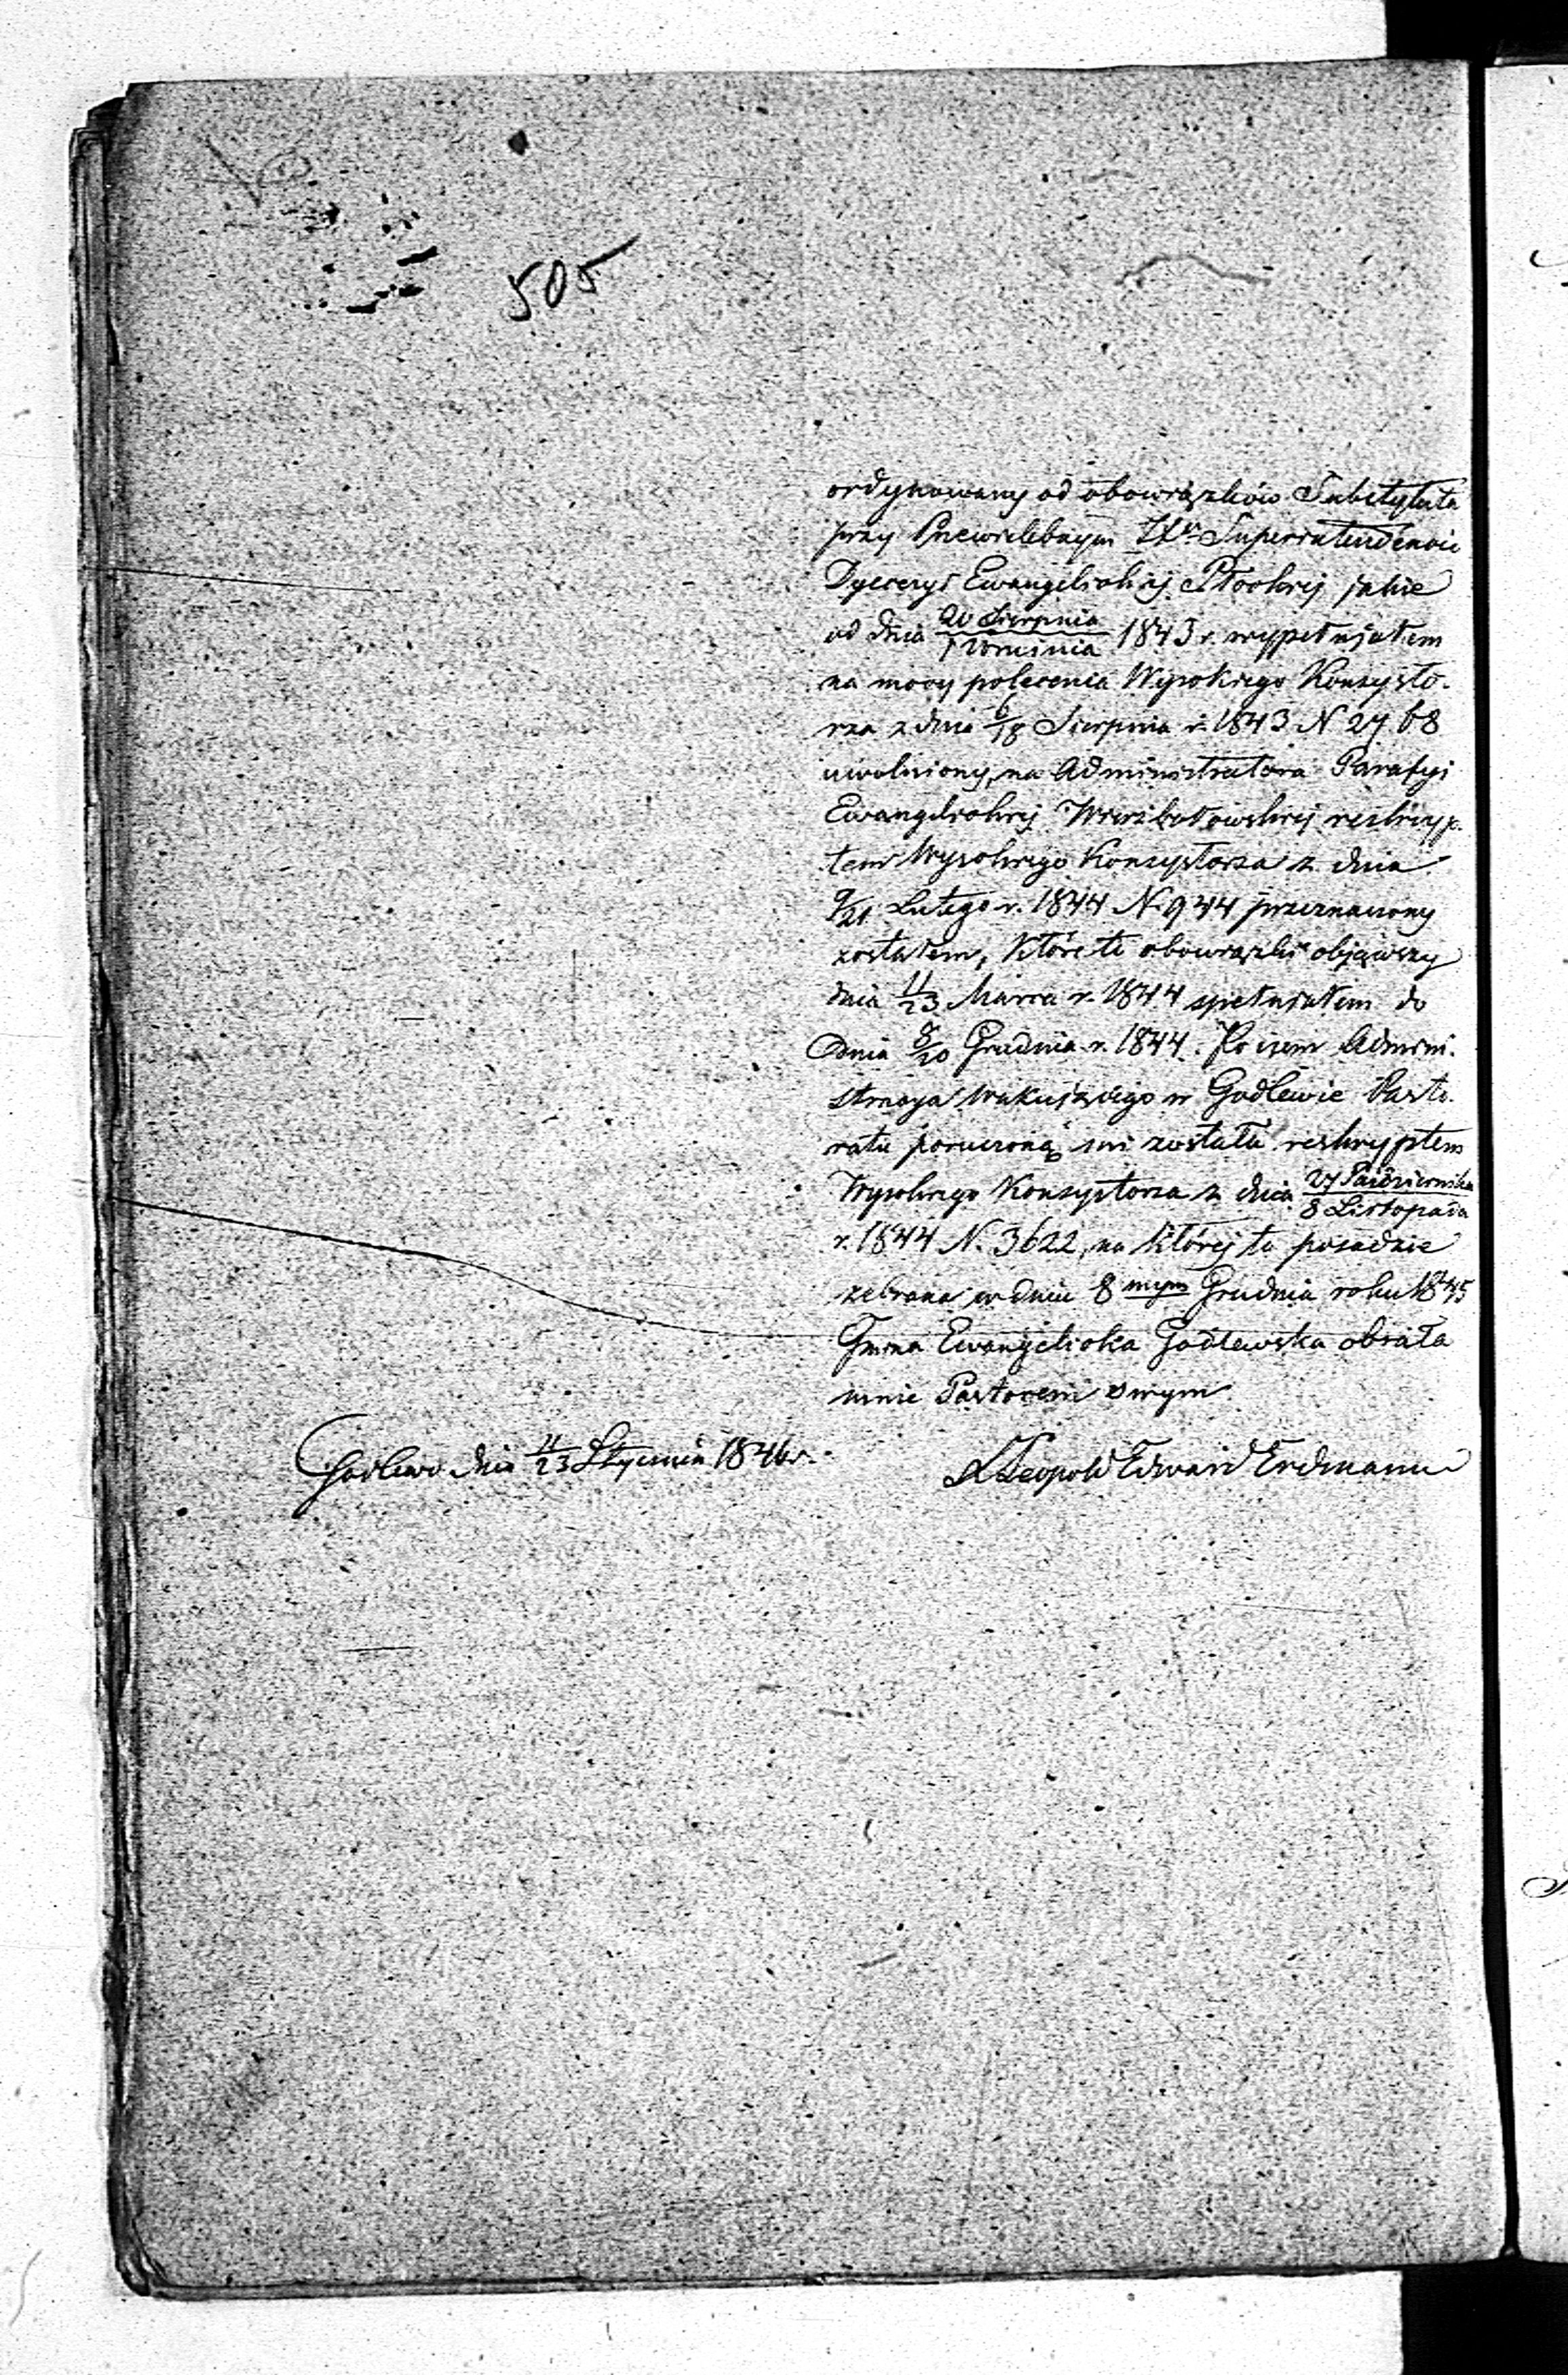 505
ordynowany od obowiązków Substytuta
przy Przewielebnym Superintendencie
Dyecezyi Ewangelickiej Płockiej jakie
od dnia 20 Sierpnia / 1 Września 1843 r. wypełniałem
na mocy polecenia Wysokiego Konsysto-
rza z dnia 6/18 Sierpnia r. 1843 N 2768
uwolniony, na Administratora Parafyi
Ewangelickiej Wierzbołowskiej reskryp-
tem Wysokiego Konsystorza z dnia
9/21 Lutego r. 1844 N. 944 przeznaczony
zostałem, które te obowiązki objąwszy
dnia 11/23 Marca r. 1844 spełniałem do
Dnia 8/20 Grudnia r. 1844. Po czem Admini-
stracya wakującego w Godlewie Pasto-
ratu poruczoną mi została reskryptem
Wysokiego Konsystorza z dnia 27 Października / 8 Listopada
r. 1844 N. 3622, na której to posadzie
zebrana w dniu 8mym Grudnia roku 1845
Gmina Ewangelicka Godlewska obrała
mnie Pastorem swym
Godlewo dnia 11/23 Stycznia 1846 r.
Leopold Edward Erdmann